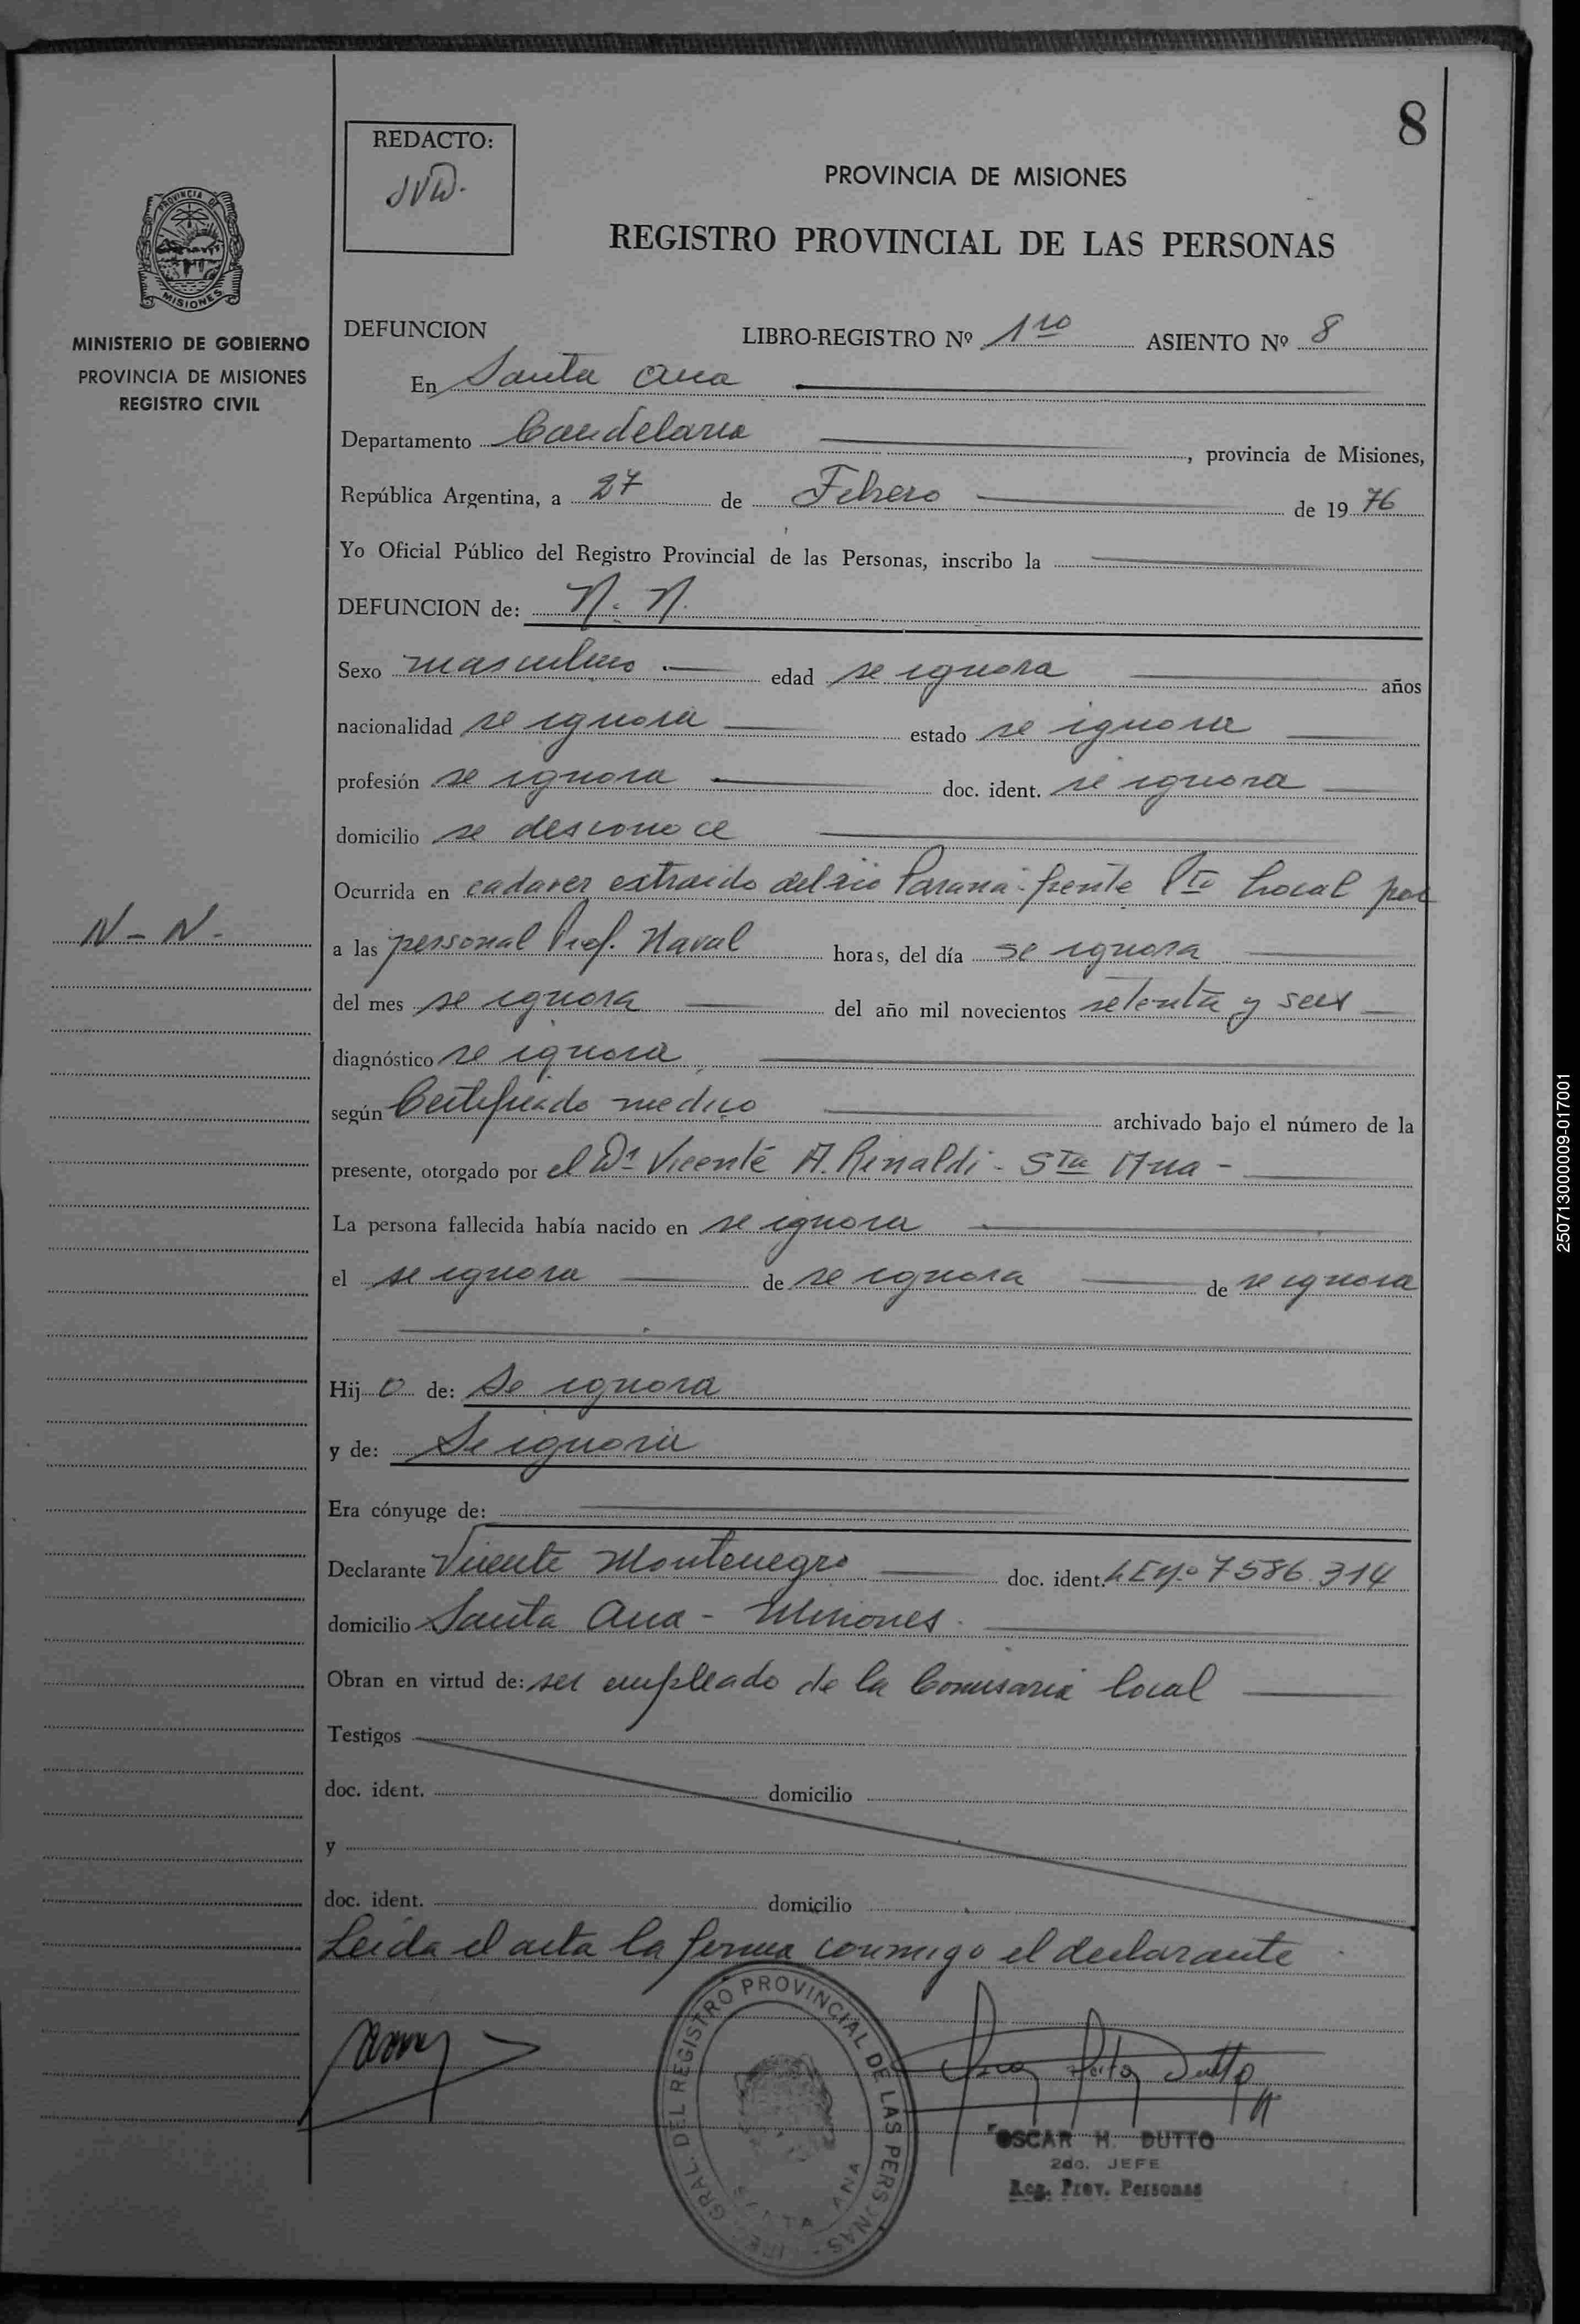 8
REDACTO:
JVD.
PROVINCIA DE MISIONES
REGISTRO PROVINCIAL DE LAS PERSONAS
PROVINCIA DE
MISIONES
MINISTERIO DE GOBIERNO
PROVINCIA DE MISIONES
REGISTRO CIVIL
DEFUNCION LIBRO-REGISTRO Nº 1ro ASIENTO Nº 8
En Santa Ana
Departamento Candelaria, provincia de Misiones,
República Argentina, a 27 de Febrero de 1976
Yo Oficial Público del Registro Provincial de las Personas, inscribo la
DEFUNCION de: N. N.
Sexo masculino edad se ignora años
nacionalidad se ignora estado se ignora
profesión se ignora doc. ident. se ignora
domicilio se desconoce
Ocurrida en cadaver extraido del rio Parana-frente Pto local por
N-N-
a las personal Pref. Naval horas, del día se ignora
del mes se ignora del año mil novecientos setenta y seis
diagnóstico se ignora
según Certificado medico archivado bajo el número de la
presente, otorgado por el Dr Vicente A. Rinaldi - Sta Ana -
La persona fallecida había nacido en se ignora
el se ignora de se ignora de se ignora
Hijo de: Se ignora
y de: Se ignora
Era cónyuge de:
Declarante Vicente Montenegro doc. ident. LE Nº 7586.314
domicilio Santa Ana - Misiones.
Obran en virtud de: ser empleado de la Comisaria local
Testigos
doc. ident. domicilio
y
doc. ident. domicilio
Leida el acta la firma conmigo el declarante
GRAL. DEL REGISTRO PROVINCIAL DE LAS PERSONAS
SANTA ANA
OSCAR H. DUTTO
2do. JEFE
Reg. Prov. Personas
250713000009-017001